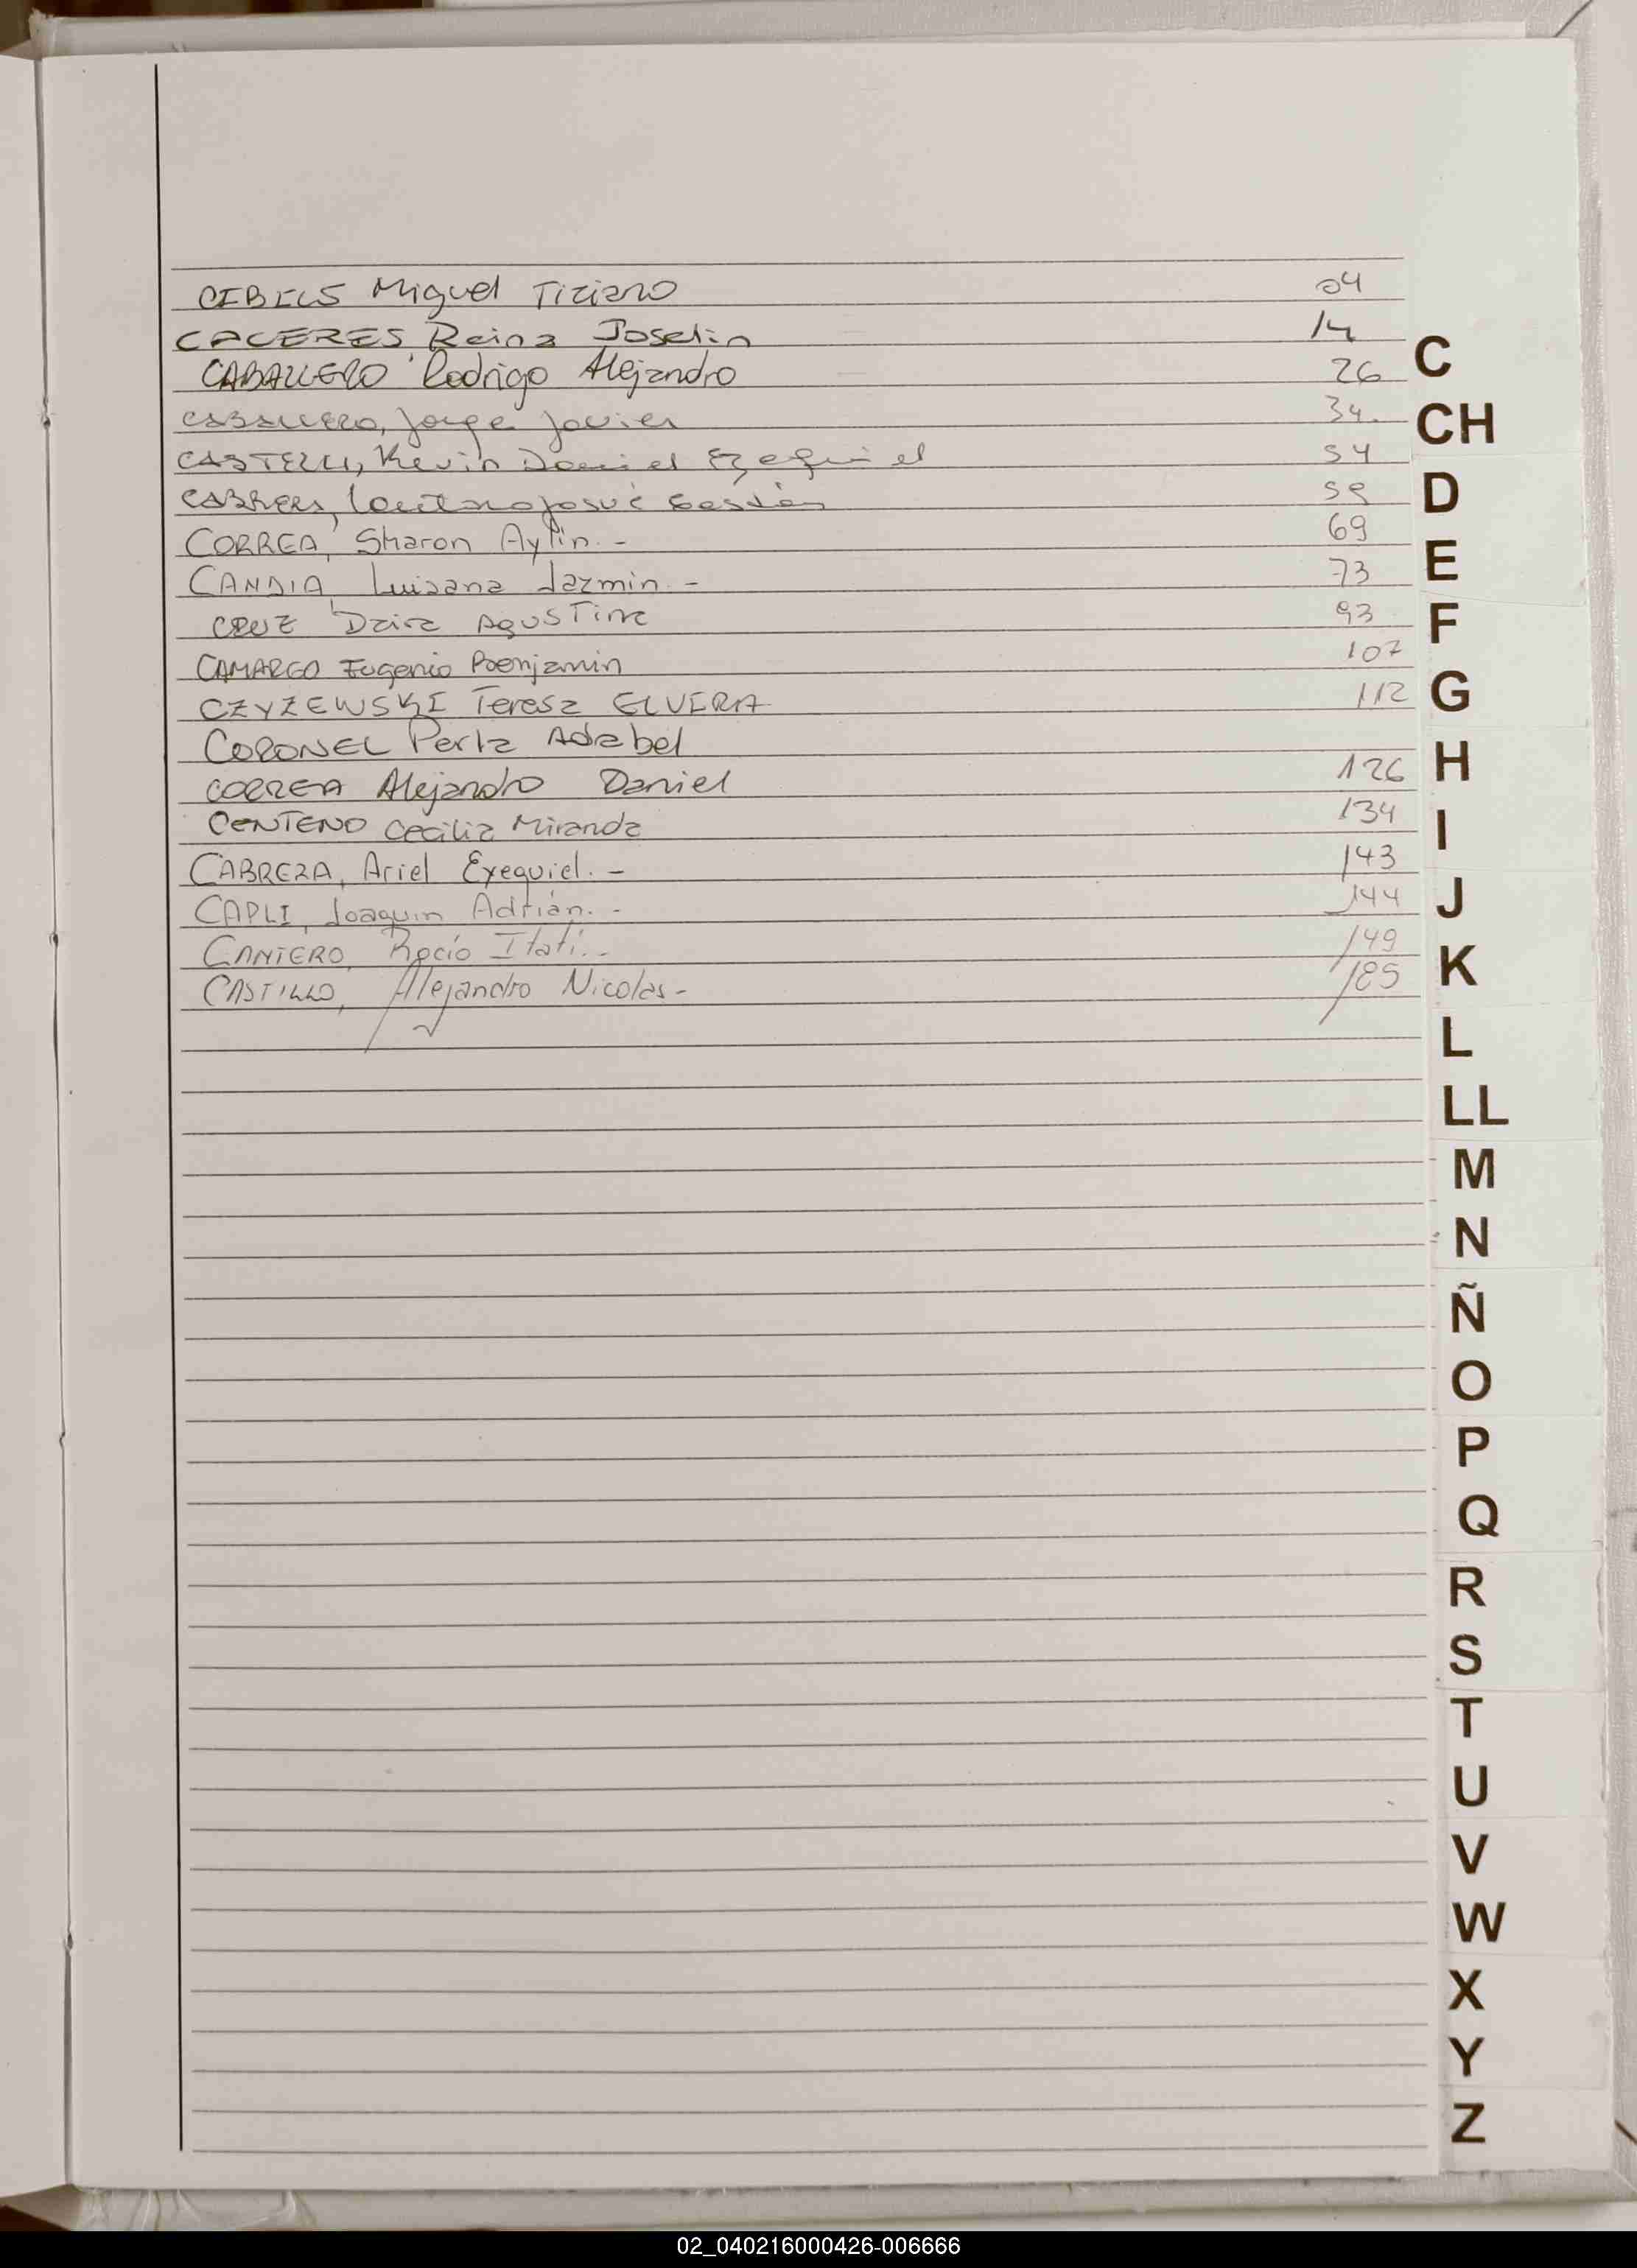 CIBILS Miguel Tiziano 04
CACERES Reina Joselin 14
CABALLERO Rodrigo Alejandro 26
CABALLERO, Jorge Javier 34.
CASTELLI, Kevin Daniel Ezequiel 54
CABRERA, Lautaro Josué Gastón 59
CORREA, Sharon Aylin.- 69
CANDIA, Luisana Jazmin.- 73
CRUZ Daira AgusTina 93
CAMARGO Eugenio Benjamin 107
CZYZEWSKI Teresa ELVERA 112
CORONEL Perla Adabel
CORREA Alejandro Daniel 126
CENTENO Cecilia Miranda 134
CABRERA, Ariel Exequiel.- 143
CAPLI, Joaquin Adrián.- 144
CANTERO, Rocío Itatí.- 149
CASTILLO, Alejandro Nicolas- 185
C
CH
D
E
F
G
H
I
J
K
L
LL
M
N
Ñ
O
P
Q
R
S
T
U
V
W
X
Y
Z
02_040216000426-006666